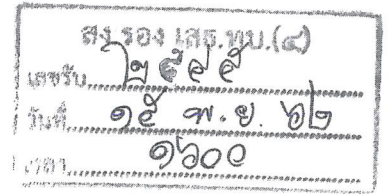 สง.รอง เสธ.ทบ.(๔)
เลขรับ
วันที่ ๑๕ พ.ย. ๖๒
เวลา ๑๖๐๐